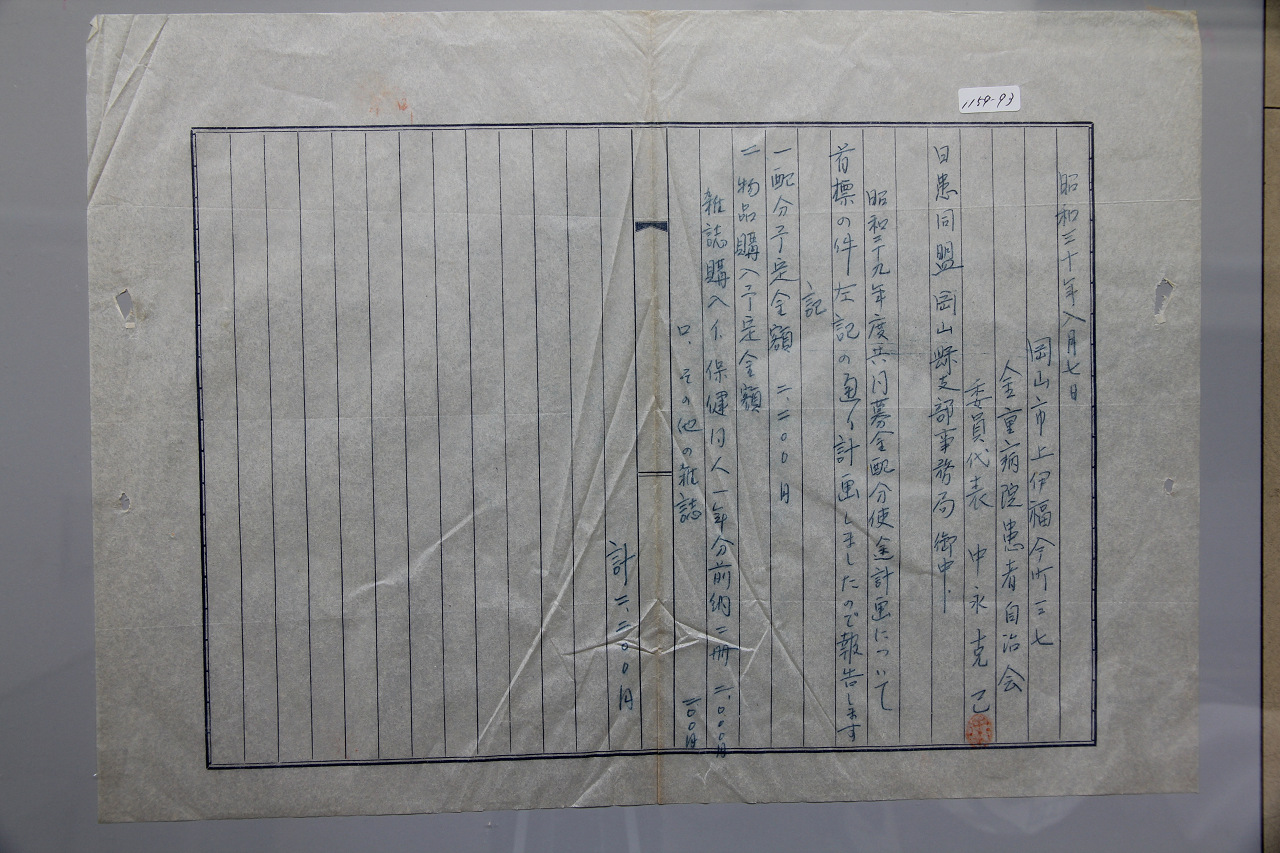 1159-93
昭和三十年八月七日
岡山市上伊福今町三七
金重病院患者自治会
委員代表 中永克己
日患同盟岡山縣支部事務局御中
昭和二十九年度共同募金配分使途計画について
首標の件左記の通り計画しましたので報告します
記
一配分予定金額 二、二〇〇円
二物品購入予定金額
雑誌購入イ、保健同人一年分前納二冊 二、〇〇〇円
ロ、その他の雑誌 二〇〇円
計二、二〇〇円